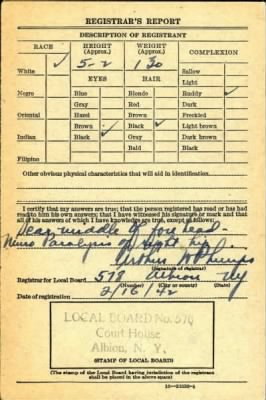 REGISTRAR'S REPORT
DESCRIPTION OF REGISTRANT
RACE
HEIGHT (Approx.)
WEIGHT (Approx.)
COMPLEXION
5-2
130
White
EYES
HAIR
Sallow
Light
Negro
Blue
Blonde
Ruddy
Gray
Red
Dark
Oriental
Hazel
Brown
Freckled
Brown
Black
Light brown
Indian
Black
Gray
Dark brown
Bald
Black
Filipino
Other obvious physical characteristics that will aid in identification
I certify that my answers are true; that the person registered has read or has had
read to him his own answers; that I have witnessed his signature or mark and that
all of his answers of which I have knowledge are true, except as follows:
Scar middle of forehead
Paralysis of right hip
Arthur
(Signature of registrar)
Registrar for Local Board 578 Albion NY
(Number) (City or county) (State)
Date of registration 2/16/42
LOCAL BOARD No. 576
Court House
Albion, N. Y.
(STAMP OF LOCAL BOARD)
(The stamp of the Local Board having jurisdiction of the registrant
shall be placed in the above space)